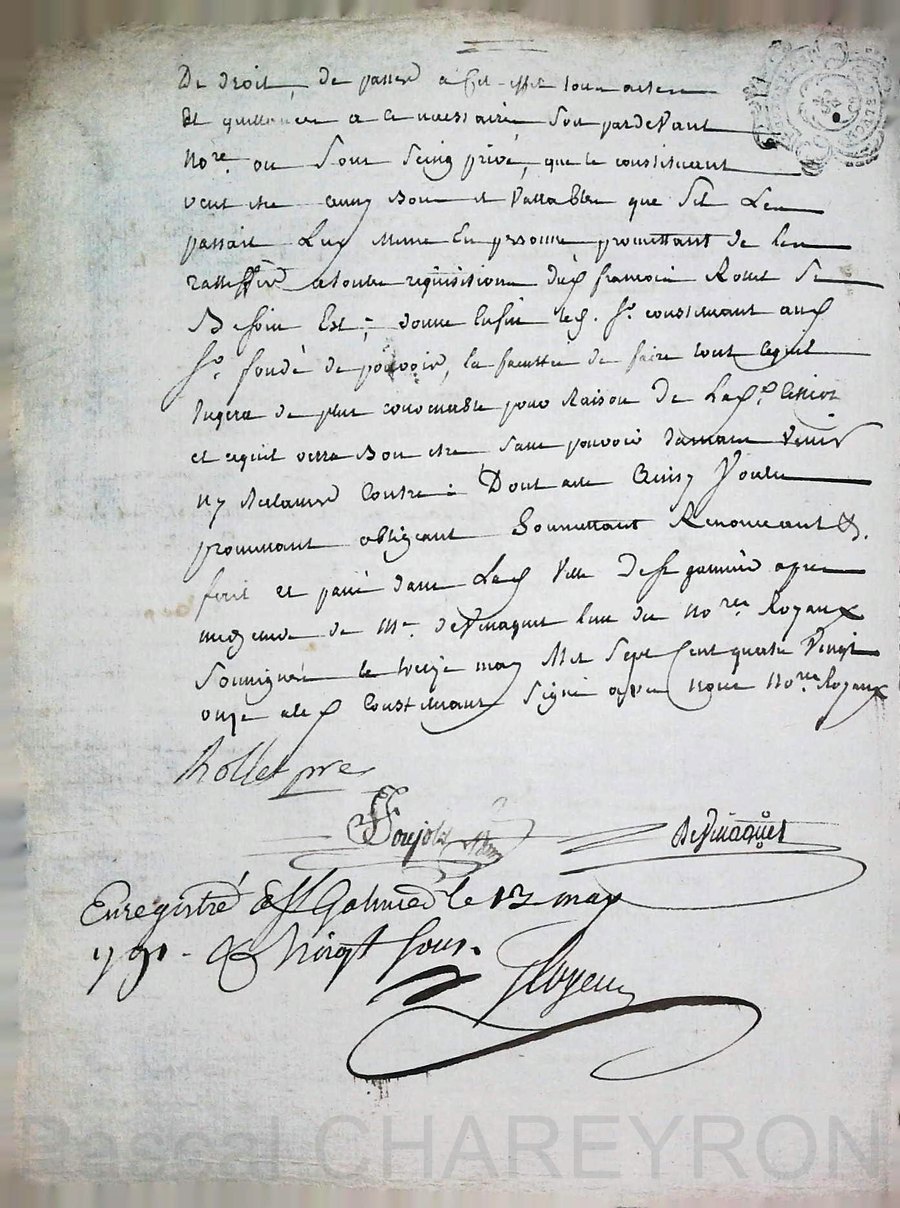 De droit, de passer a cet effet tous actes
Et quittances a ce necessaire Soit pardevant
No.re ou Sous Seing privé, que le constituant
veut etre aussy Bons et Vallables que Sil Les
passait Luy Meme En personne promettant de les
rattiffier atoutes requisitions dud françois Rollet Si
Besoin Est; donne Enfin led. Sr. constituant aud
Sr. fondé de pouvoir, la facultée de faire tout cequil
Jugera de plus convenable pour Raison de Lad.
et cequil verra Bon etre Sans pouvoir
ny Reclamer Contre: Dont acte Ainsy Voulu
promettant obligeant Soumettant Renonceant &.
fait et passé dans Lad Ville de St galmier apres
midy de Me. deVinaquet lun des No.res Royaux
Soussignés le treize may Mil Sept Cent quatre Vingt
onze aled Constituant Signé avec Nous No.res Royaux
Rollet pre
Soujols
DeVinaquet
Enregistré a St Galmier le 13 may
1791 - & Vingt Sous.